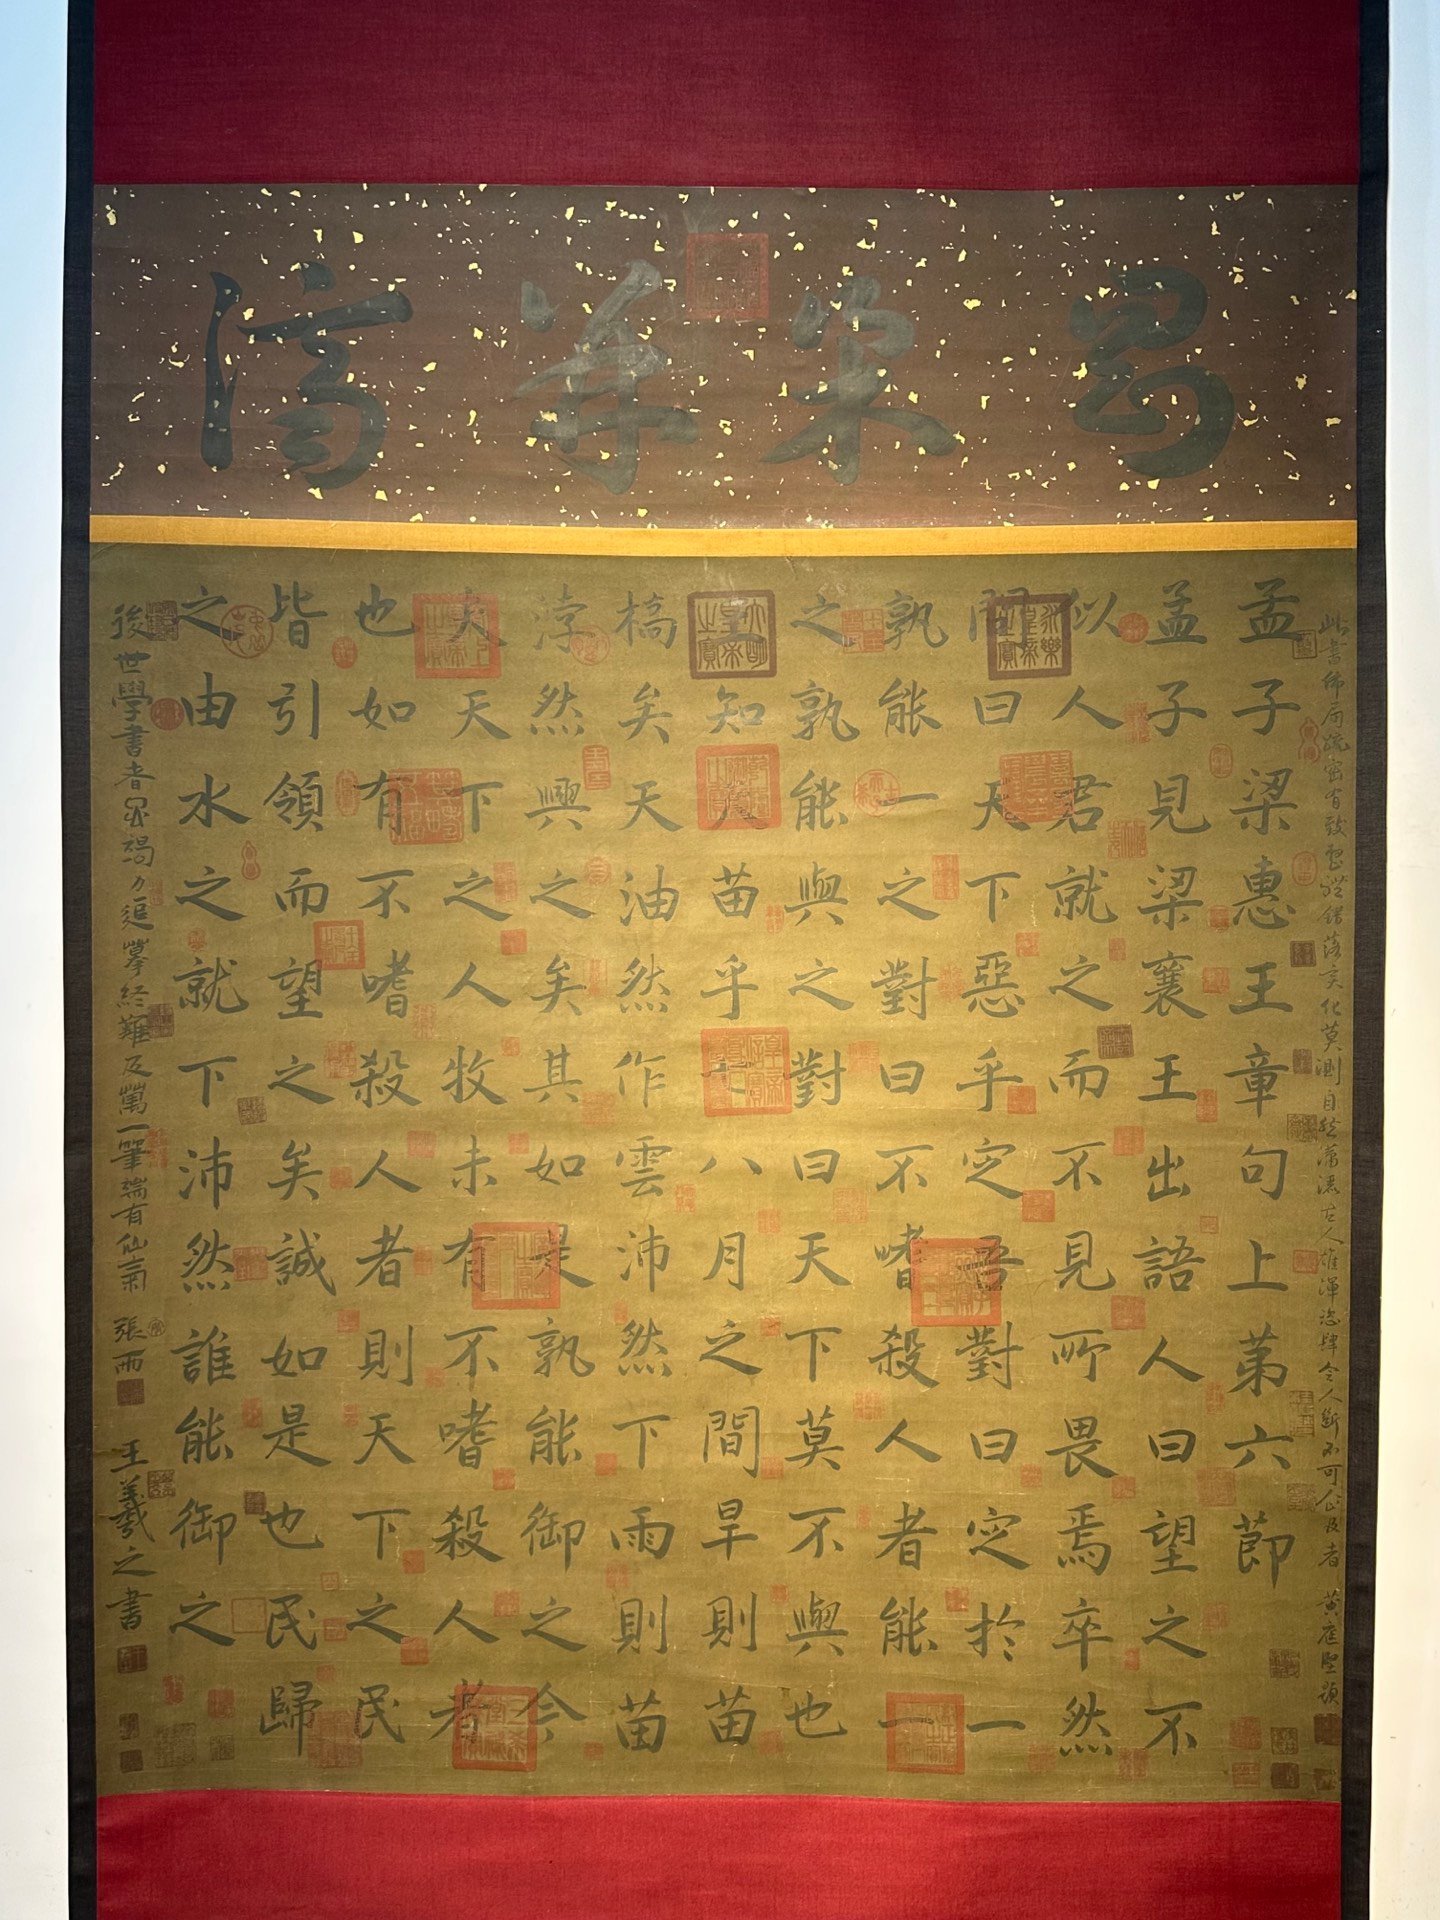 此書佈局疏密有致錯落变化莫測自然瀟洒古人雄渾恣肆令人斷不可企及者 黃庭堅題
孟子梁惠王章句上第六節
孟子見梁襄王出語人曰望之不
似人君就之而不見所畏焉卒然
問曰天下惡乎定吾對曰定於一
孰能一之對曰不嗜殺人者能一
之孰能與之對曰天下莫不與也
王知夫苗乎七八月之間旱則苗
槁矣天油然作雲沛然下雨則苗
浡然興之矣其如是孰能御之今
夫天下之人牧未有不嗜殺人者
也如有不嗜殺人者則天下之民
皆引領而望之矣誠如是也民歸
之由水之就下沛然誰能御之
後世學書者竭力追摹終難及萬一筆端有仙氣 張雨 王羲之書